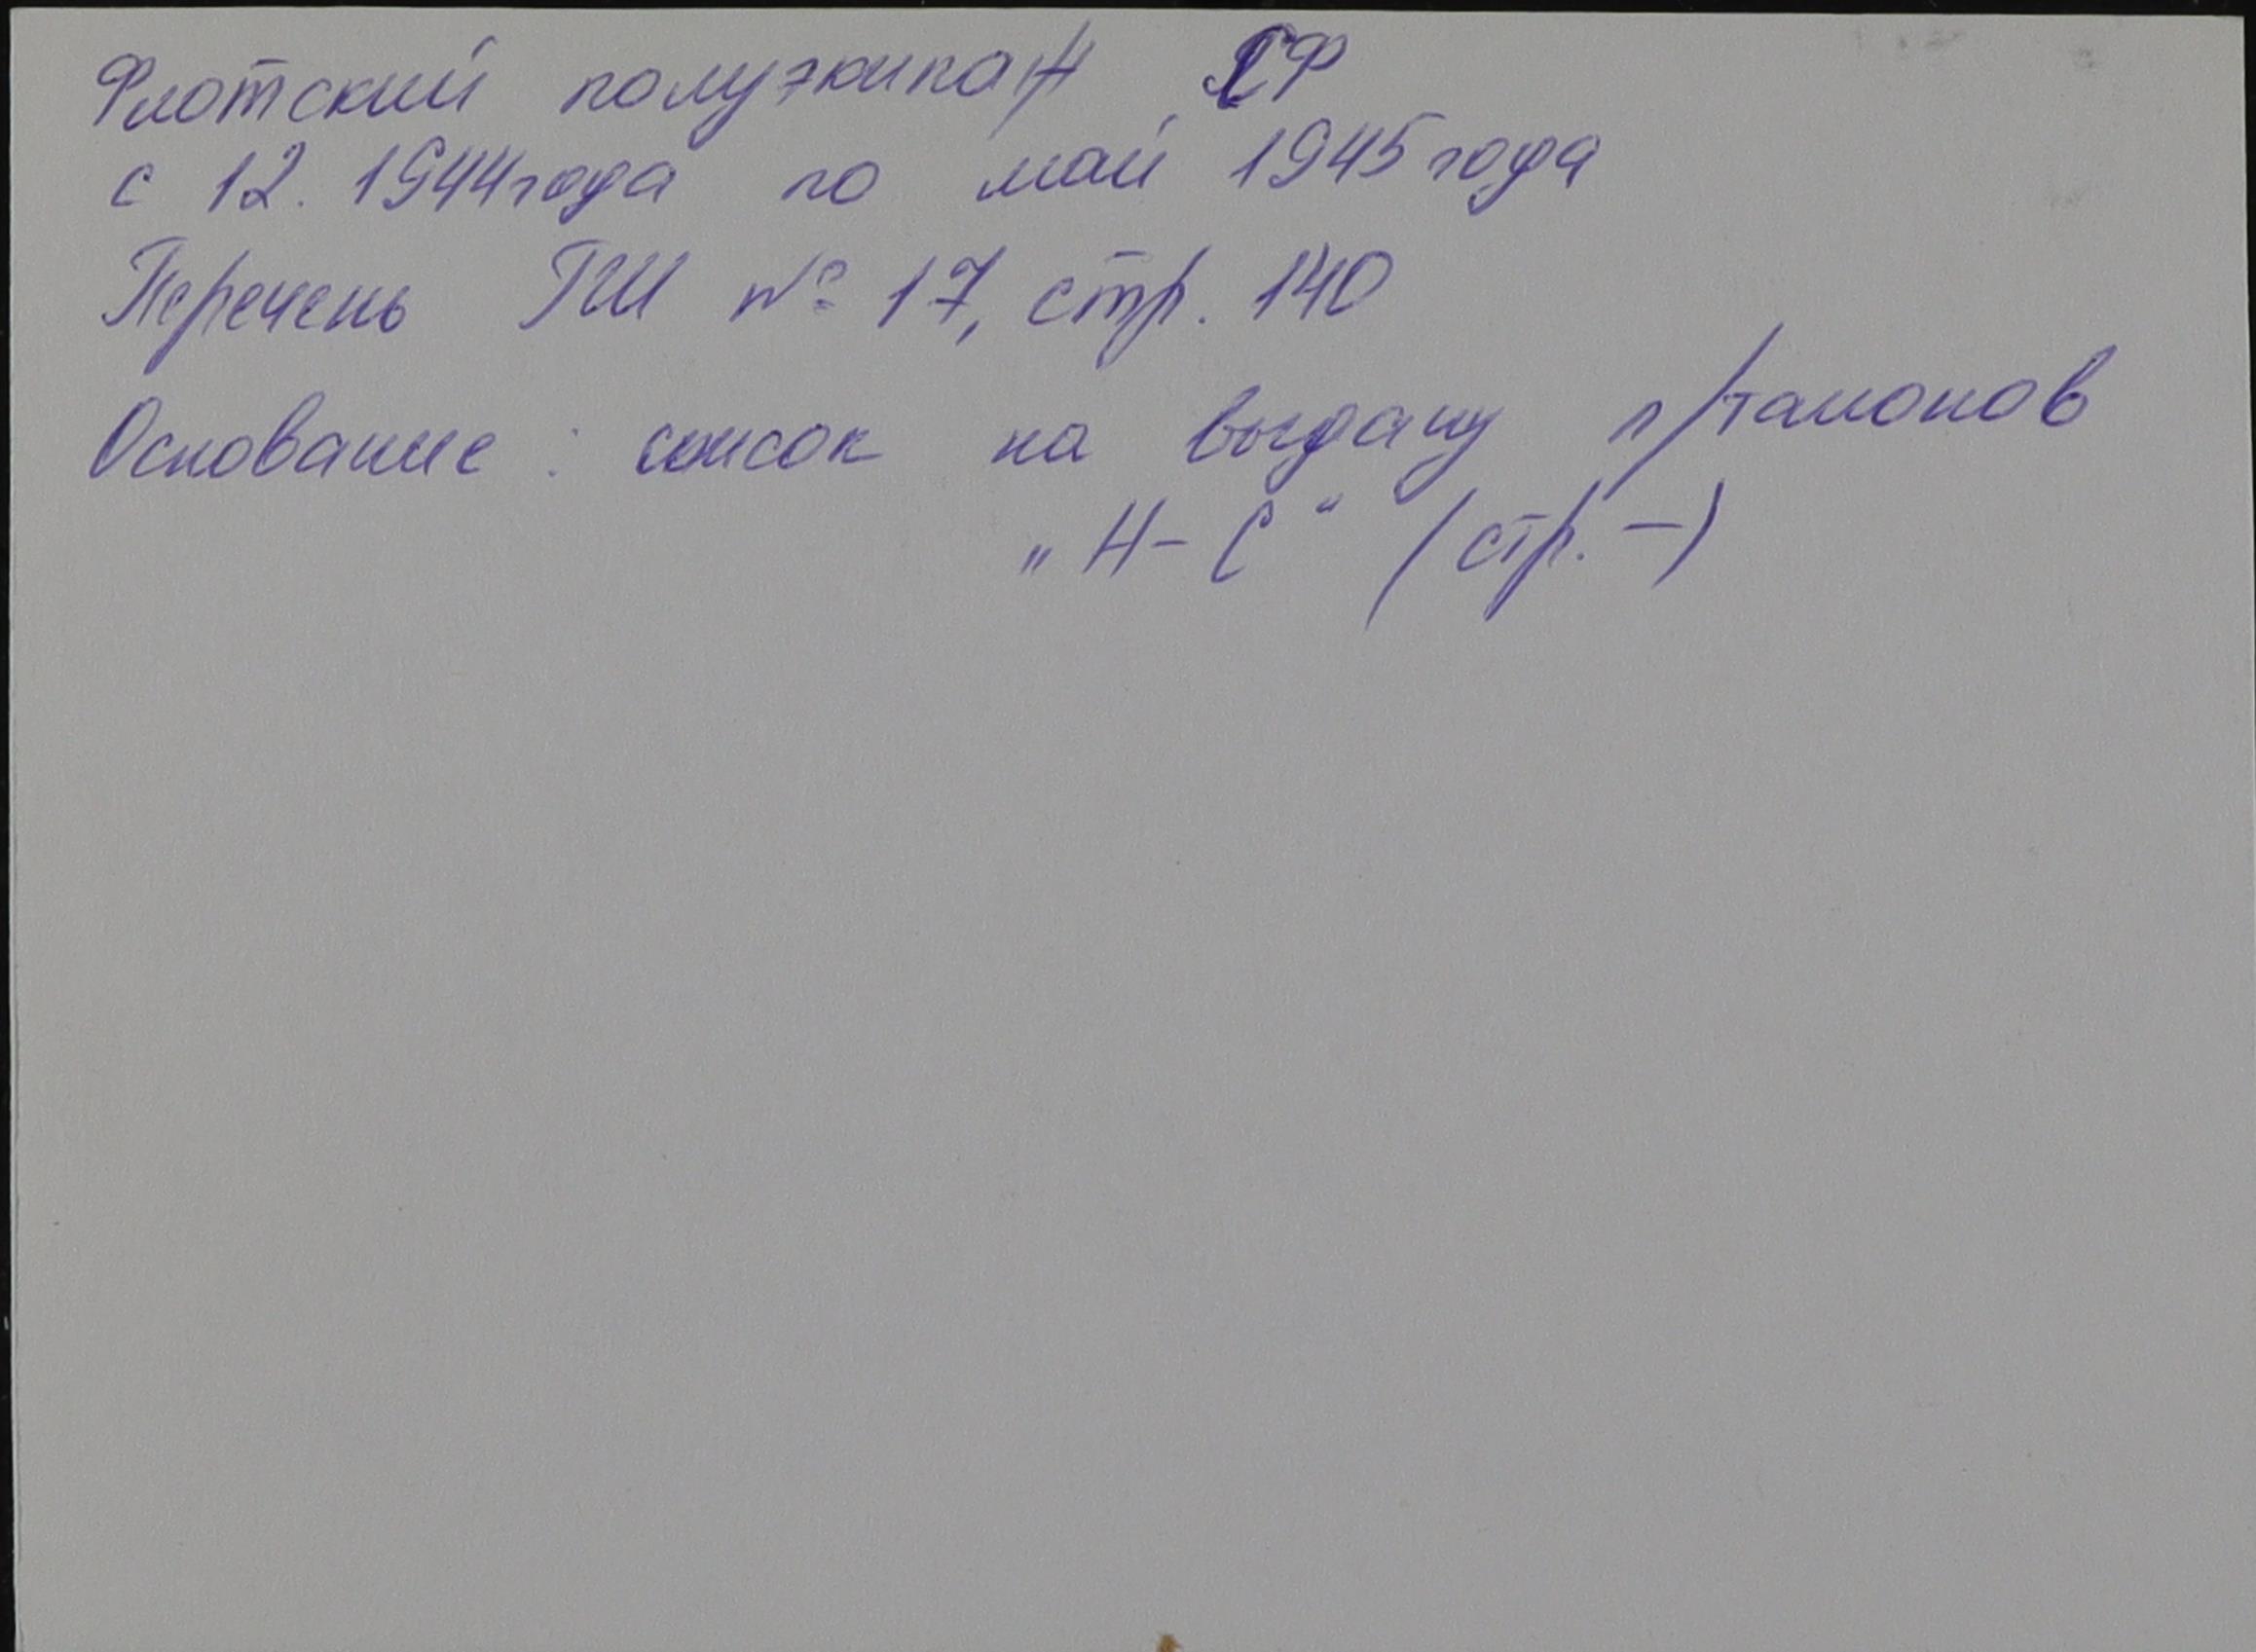 Флотский полуэкипаж СФ
с 12. 1944 года по май 1945 года
Перечень ГШ № 17, стр. 140
Основание: список на выдачу п/талонов
„Н-С“ (стр. —)